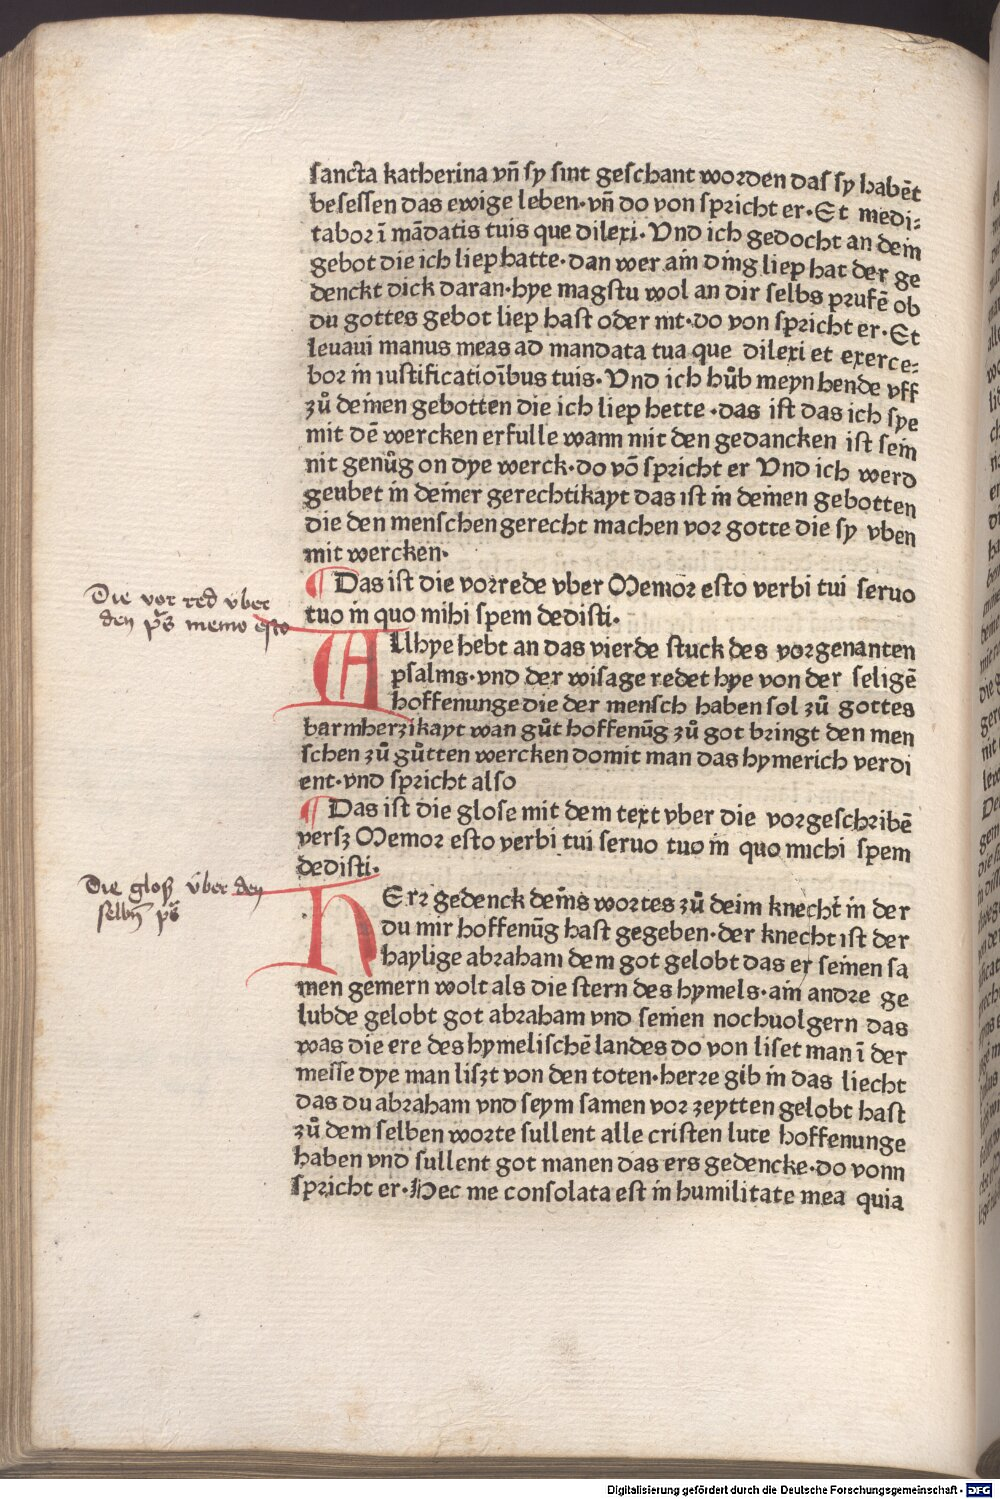 sancta katherina vñ sy sint geschant worden das sy habēt
besessen das ewige leben·vñ do von spricht er·Et medi:
tabor ī mādatis tuis que dilexi·Vnd ich gedocht an dein
gebot die ich liep hatte·dan wer ain ding liep hat der ge
denckt dick daran·hye magstu wol an dir selbs prufē ob
du gottes gebot liep hast oder nit·do von spricht er·Et
leuaui manus meas ad mandata tua que dilexi et exerce:
bor in iustificatioībus tuis·Vnd ich hůb meyn hende vff
zů deinen gebotten die ich liep hette·das ist das ich sye
mit dē wercken erfulle wann mit den gedancken ist sein
nit genůg on dye werck·do vō spricht er Vnd ich werd
geubet in deiner gerechtikayt das ist in deinen gebotten
die den menschen gerecht machen vor gotte die sy vben
mit wercken·
¶ Das ist die vorrede vber Memor esto verbi tui seruo
tuo in quo mihi spem dedisti·
Die vor red vber
den ps memo esto
Allhye hebt an das vierde stuck des vorgenanten
psalms·vnd der wisage redet hye von der seligē
hoffenunge die der mensch haben sol zů gottes
barmherzikayt wan gůt hoffenūg zů got bringt den men
schen zů gůtten wercken domit man das hymerich verdi
ent·vnd spricht also
¶ Das ist die glose mit dem text vber die vorgeschribē
versz Memor esto verbi tui seruo tuo in quo michi spem
dedisti·
Die gloß vber den
selbn̄ ps
HErr gedenck deins wortes zů deim knecht in der
du mir hoffenūg hast gegeben·der knecht ist der
haylige abraham dem got gelobt das er seinen sa
men gemern wolt als die stern des hymels·ain andre ge
lubde gelobt got abraham vnd seinen nochuolgern das
was die ere des hymelischē landes do von liset man ī der
messe dye man liszt von den toten·herre gib in das liecht
das du abraham vnd seym samen vor zeytten gelobt hast
zů dem selben worte sullent alle cristen lute hoffenunge
haben vnd sullent got manen das ers gedencke·do vonn
spricht er·Hec me consolata est in humilitate mea quia
Digitalisierung gefördert durch die Deutsche Forschungsgemeinschaft - DFG